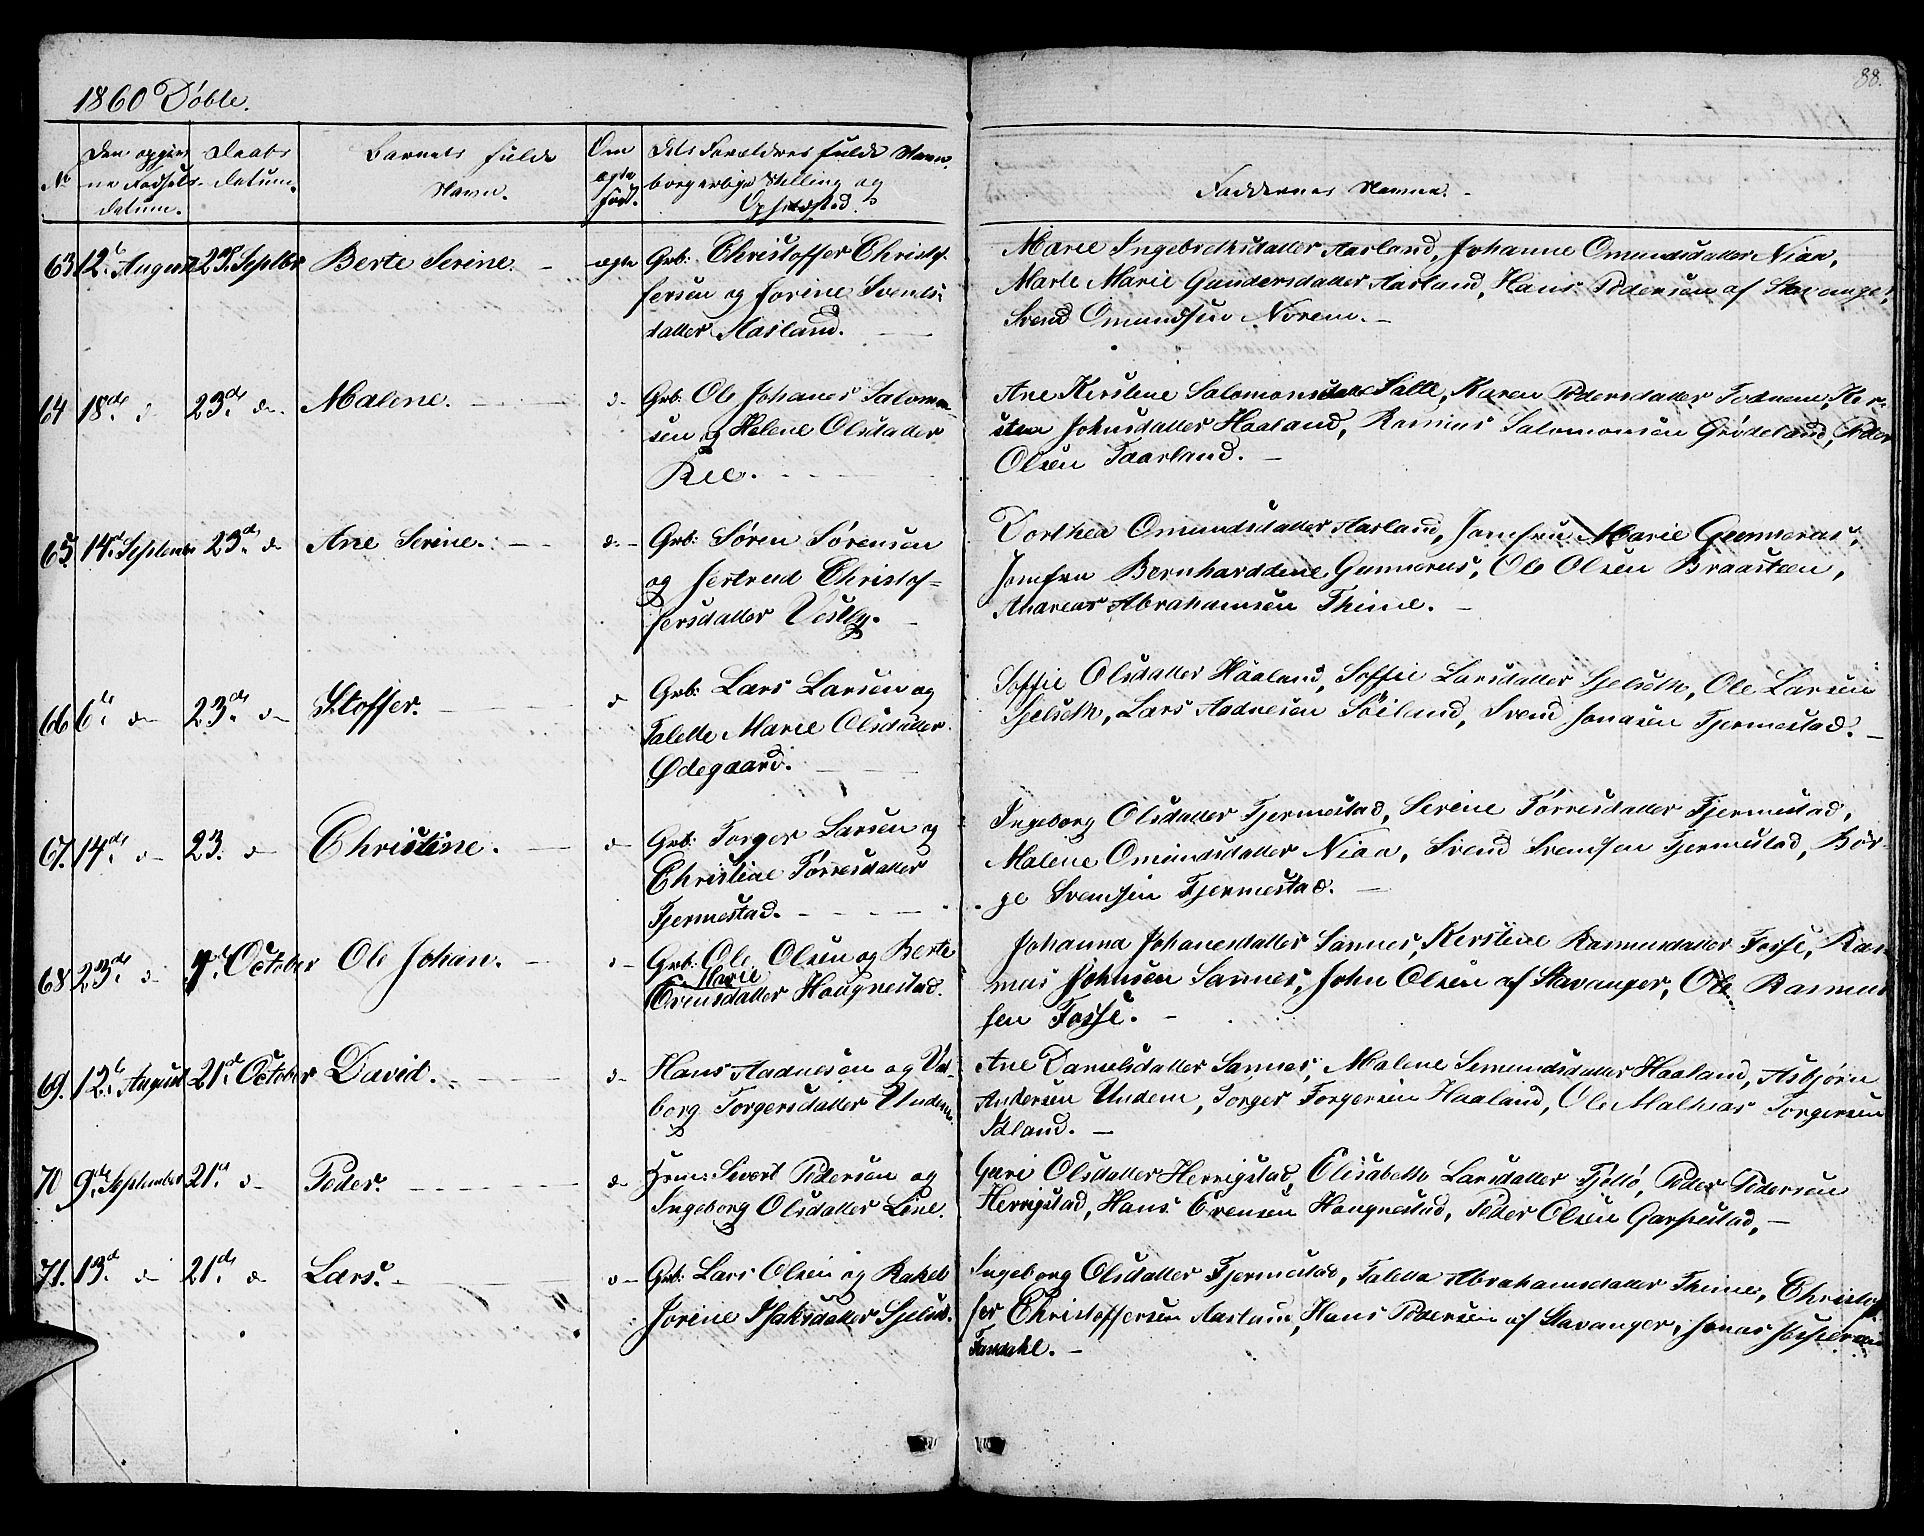 88.
1860 Döbte.
No
Den opgiv
ne Fødsels
datum.
Daabs
datum.
Barnets fulde
Navn.
Om
ægte
fød.
Dets Forældres fulde Navn
borgerlige Stilling og
Opholdsted.
Faddernes Navne.
63. 12te August 23de Septbr Berte Serine. ægte Grb: Christoffer Christof
fersen og Jorine Svends
datter Aasland.
Marie Ingebrethsdatter Aarland, Johanne Omundsdatter Nian,
Marte Marie Gundersdatter Aarland, Hans Pedersen af Stavanger,
Svend Omundsen Norem.
64 18de d 23de do Malene. d Grb: Ole Johanes Salomon
sen og Helene Olsdatter
Ree.
Ane Kirstene Salomonsdatter Salte, Karen Pedersdatter Todnem, Kir
stine Johnsdatter Haaland, Rasmus Salomonsen Grødeland, Peder
Olsen Taarland.
65. 14de September 23de d Ane Serine. d Grb: Søren Sørensen
og Jertrud Christof=
fersdatter Vestly.
Dorthea Omundsdatter Aarland, Jomfru Marie Gunnerus,
Jomfru Bernharddine Gunnerus, Ole Olsen Braasteen,
Andreas Abrahamsen Thime.
66 6te d 23de d Stoffer. d Grb: Lars Larsen og
Talette Marie Olsdatter
Ødegaard.
Soffie Olsdatter Haaland, Soffie Larsdatter Sjelseth, Ole Larsen
Sjelseth, Lars Aadnesen Söiland, Svend Jonasen Tjermestad.
67. 14de d 23. d Christine. d Grb: Torger Larsen og
Christine Tørresdatter
Tjermestad.
Ingeborg Olsdatter Tjermestad, Serine Tørresdatter Tjermestad,
Malene Omundsdatter Nian, Svend Svendsen Tjermestad, Bör-
ge Svendsen Tjermestad.
68 23de d 7de October Ole Johan. d Grb: Ole Olsen og Berte
Marie
Erensdatter Haugnestad.
Johanna Johanesdatter Sannes, Kirstine Rasmusdatter Fosse, Ras-
mus Johnsen Sannes, John Olsen af Stavanger, Ole Rasmus
sen Fosse.
69. 12te August 21de October David. d Hans Aadnesen og Val-
borg Torgersdatter Undem.
Ane Danielsdatter Sannes, Malene Semundsdatter Haaland, Asbjørn
Andersen Undem, Torger Torgersen Haaland, Ole Mathias Torgersen
Idland.
70 9de September 21de d Peder. d Hmn: Sivert Pedersen og
Ingeborg Olsdatter Line.
Guri Olsdatter Herrigstad, Elisabeth Larsdatter Fjöllö, Peder Pedersen
Herrigstad, Hans Erensen Haugnestad, Peder Olsen Garpestad,
71. 13de d 21de d Lars. d Grb: Lars Olsen og Rakel
Jorine Isaksdatter Sjelset.
Ingeborg Olsdatter Tjermestad, Taletta Abrahamsdatter Thime, Christof
fer Christoffersen Aasland, Hans Pedersen af Stavanger, Jonas Jespersen